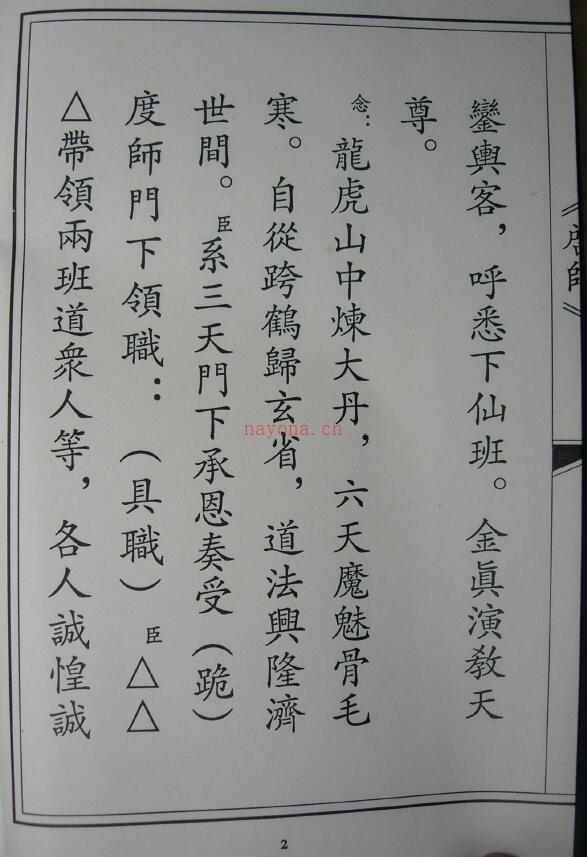 鑾輿客，呼悉下仙班。金眞演敎天
尊。
念：龍虎山中煉大丹，六天魔魅骨毛
寒。自從跨鶴歸玄省，道法興隆濟
世間。臣系三天門下承恩奏受（跪）
度師門下領職：（具職）臣△△
△帶領兩班道衆人等，各人誠惶誠
nayona.cn
2